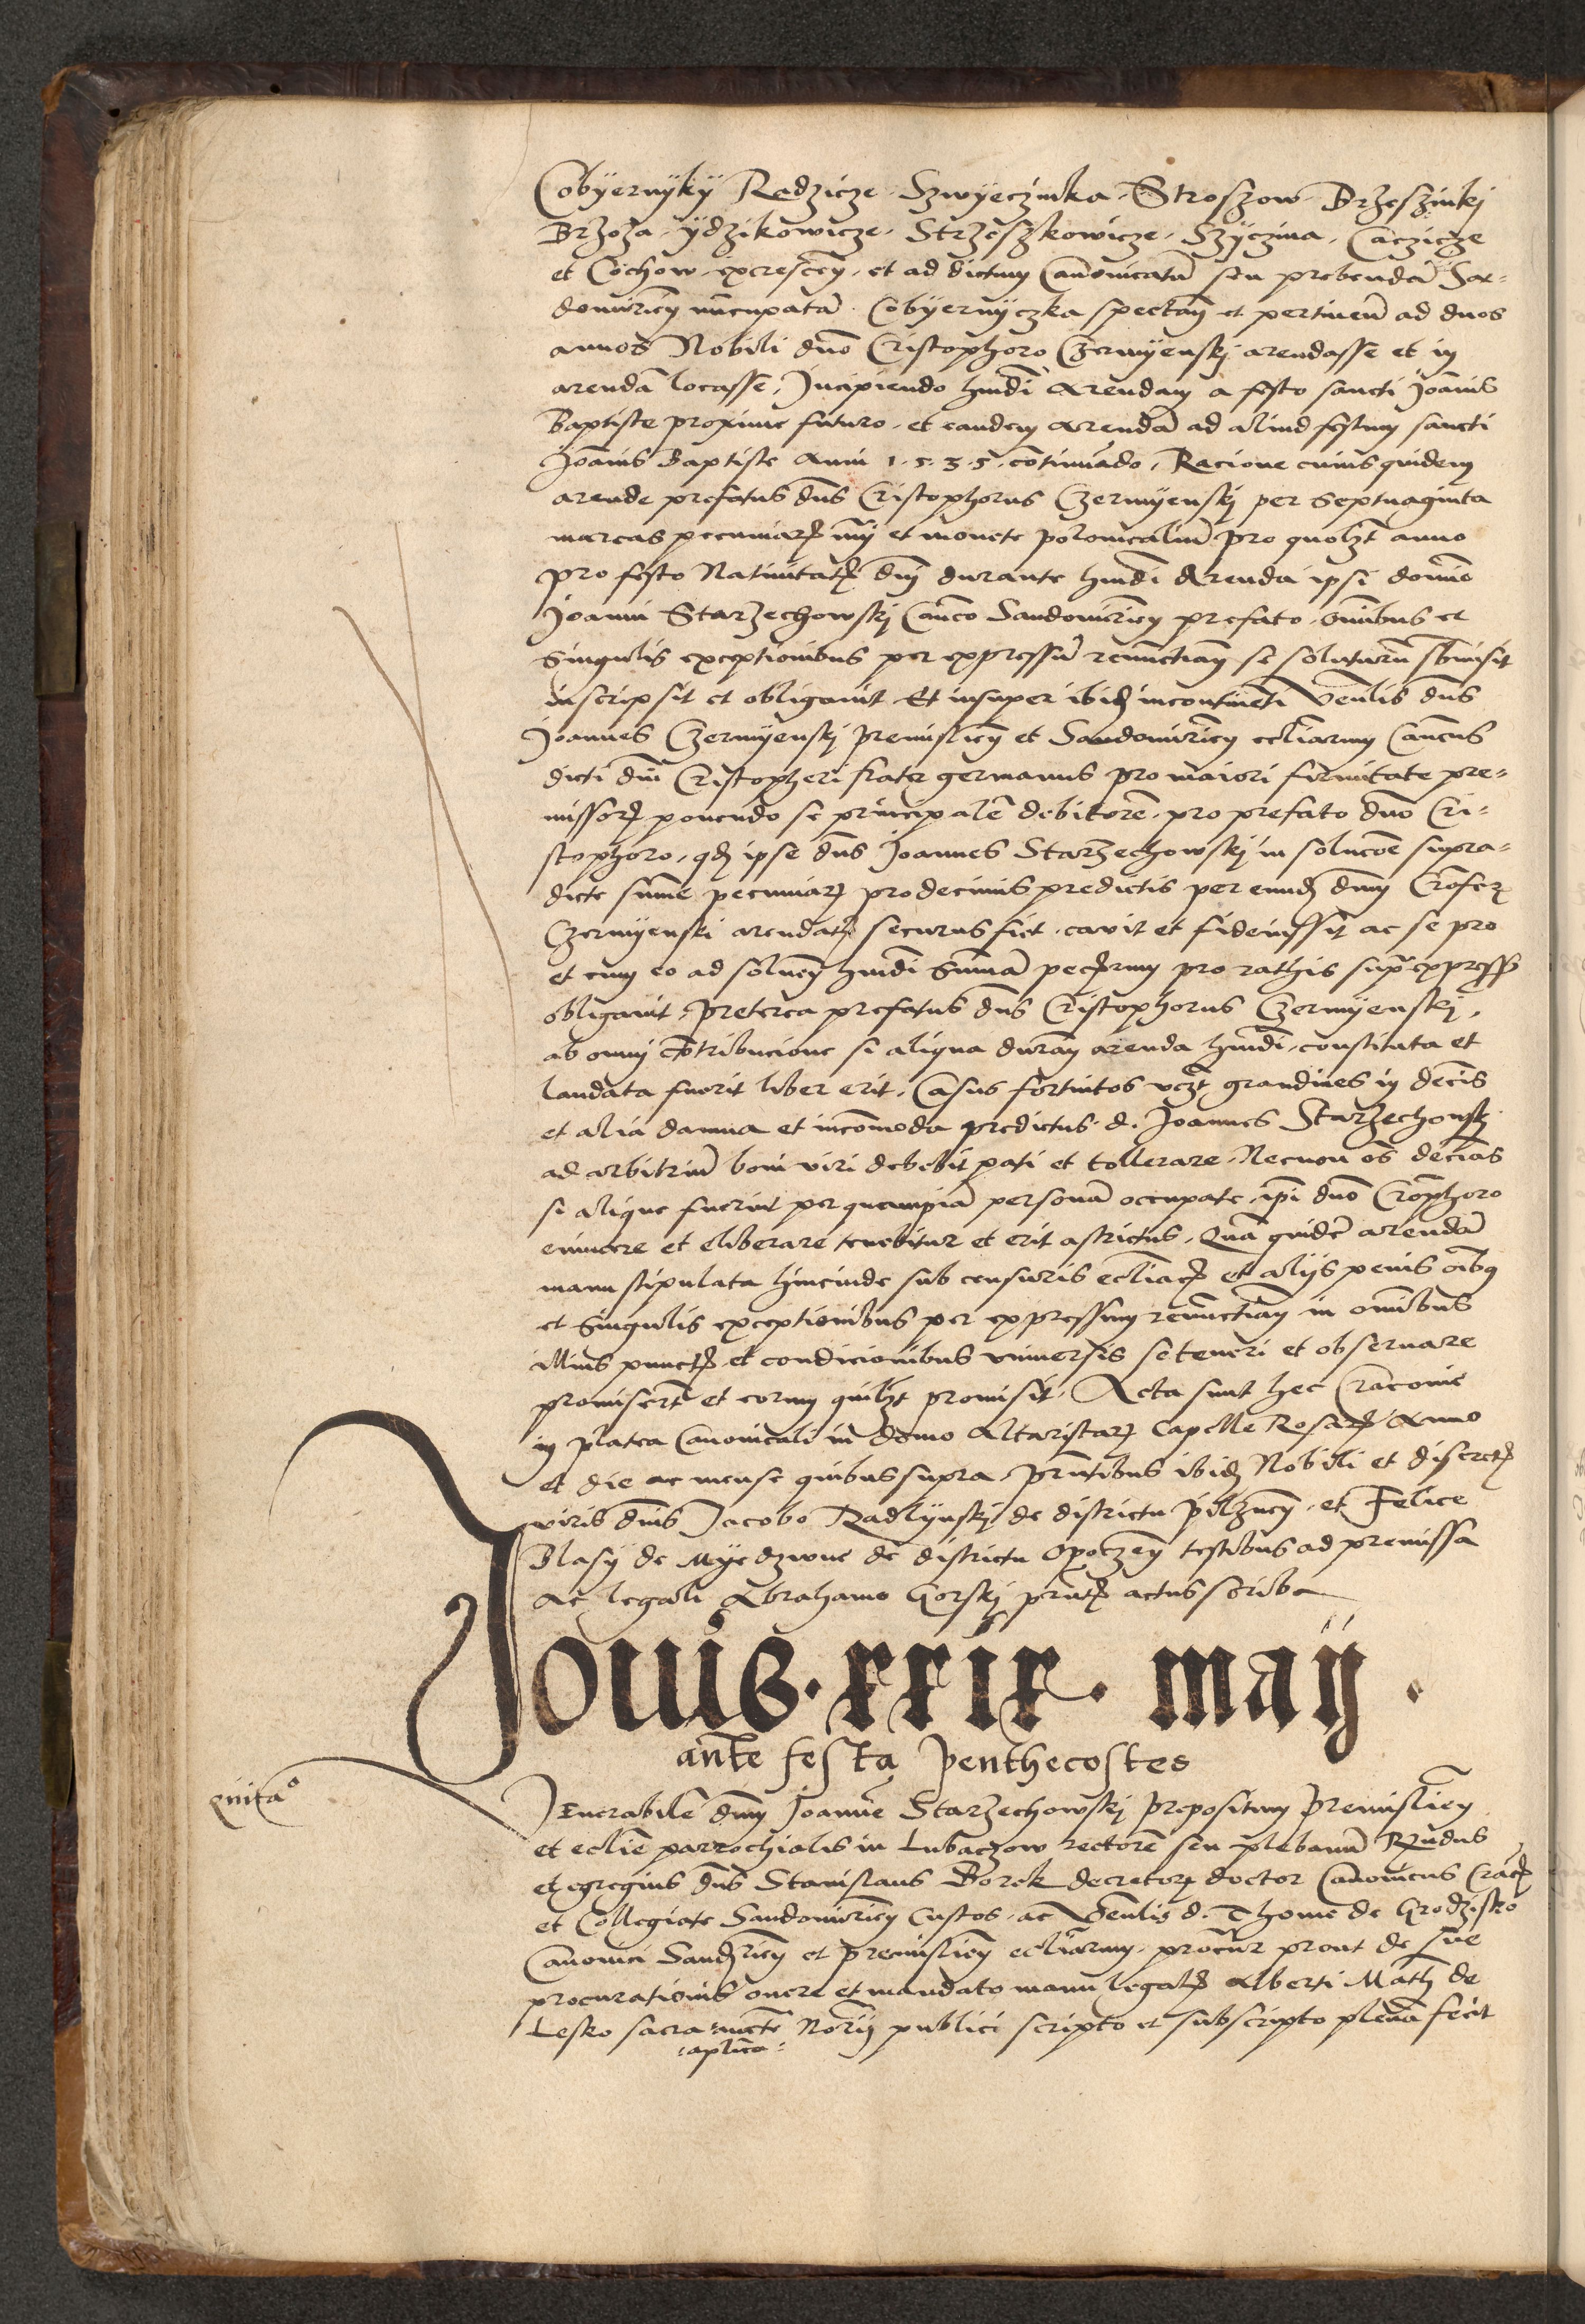 Cobyernyky Radzicze Szwyeczinka Stroszow Brzeszinky
Brzoza ydzikowicze Strzeszkowicze Szyczina Caczicze
et Cochow excrescen et ad dictum Canonicatu seu prebenda San=
domirien nuncupata Cobyernyczka spectan et pertinen ad duos
annos Nobili dno Cristophoro Czermyensky arendasse et in
arenda locasse Incipiendo hmdi arendam a festo sancti Joannis
Baptiste proxime futuro et eandem arenda ad aliud festum sancti
Joannis Baptiste Anni 1.5.3.5. continuado Racione cuius quidem
arende prefatus dns Cristophorus Czermyensky per septuaginta
marcas pecuniar nui et monete polonicaliu pro quolzt anno
pro festo Natiuitat dni durante hmdi Arenda ipsi domie
Joanni Starzechowsky Canco Sandomirien prefato omibus et
singulis exceptionibus per expressu renunctian se soluturu sbmisit
inscripsit et obligauit Et insuper ibid incontineti Venlis dns
Joannes Czermyensky Premislien et Sandomirien ecliarum Cancus
dicti dni Cristopheri frater germanus pro maiori firmitate pre=
missor ponendo se principale debitore pro prefato dno Cri=
stophoro qd ipse dns Joannes Starzechowsky in solucoe supra=
dicte sume pecuniar pro decimis predictis per eund dnm Crofer
Czermyenski arendat securus fiet cavit et fideiussit ac se pro
et cum eo ad soluen hmdi suma pecrum pro rathis supexpress
obligauit Preterea prefatus dns Cristophorus Czermyensky
ab omni cotribucione si aliqua duran arenda hmdi constituta et
laudata fuerit liber erit Casus fortuitos vczt grandines in decis
et alia damna et incomoda predictus d. Joannes Starzechowsky
ad arbitriu boni viri debebit pati et tollerare Necnon os decias
si alique fuerint per quempia persona occupate ipi dno Crophoro
euincere et eliberare tenebitur et erit astrictus Qua quide arenda
manu stipulata hincinde sub censuris ecliac et alijs penis oibq
et singulis exceptionibus per expressum renunctian in omibus
illius punct et condicionibus vniuersis se teneri et obseruare
promisert et eorum quilzt promisit Acta sunt hec Cracouie
in platea Canonicali in domo Altaristar Capelle Rosar Anno
et die ac mense quibus supra prntibus ibid Nobili et discret
viris dnis Jacobo Radlynsky de districtu pilznen et Felice
Blasy de Myedzwne de districtu Opoczen testibus ad premissa
Ac legali Abrahamo Gorsky prnt actus scriba
Jouis . xxix . may .
ante festa Penthecostes
quita°
Venerabile dnm Joanne Starzechowsky Prepositum Premislien
et eclie parrochialis in Lubaczow rectore seu plebanu Rndus
et egregius dns Stanislaus Borek decretor doctor Canonicus Crac
et Collegiate Sandomirien Custos ac Venlis d. Thome de Grodzisko
Canonici Sandrien et premislien ecliarum procur prout de sue
procurationis onere et mandato manu legal Alberti Math de
Lesko sacra aucte Norij publici scripto et subscripto plena fecit
:aplica: